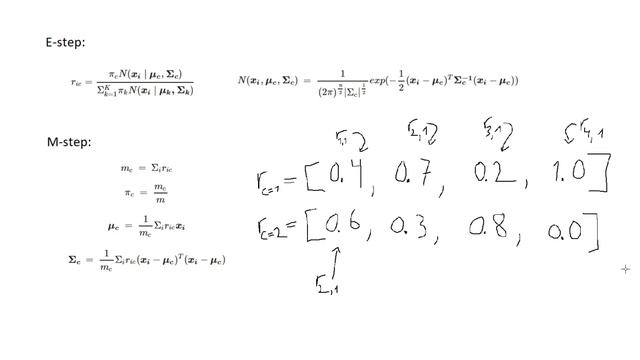 E-step:
r_{ic} = \frac{\pi_c N(x_i | \mu_c, \Sigma_c)}{\Sigma_{k=1}^{K} \pi_k N(x_i | \mu_k, \Sigma_k)}
N(x_i, \mu_c, \Sigma_c) = \frac{1}{(2\pi)^{\frac{n}{2}} |\Sigma_c|^{\frac{1}{2}}} exp(-\frac{1}{2}(x_i - \mu_c)^T \Sigma_c^{-1} (x_i - \mu_c))
M-step:
r_{1,1} r_{2,1} r_{3,1} r_{4,1}
m_c = \Sigma_i r_{ic}
r_{c=1} = [0.4, 0.7, 0.2, 1.0]
\pi_c = \frac{m_c}{m}
\mu_c = \frac{1}{m_c} \Sigma_i r_{ic} x_i
r_{c=2} = [0.6, 0.3, 0.8, 0.0]
\Sigma_c = \frac{1}{m_c} \Sigma_i r_{ic} (x_i - \mu_c)^T (x_i - \mu_c)
r_{2,1}